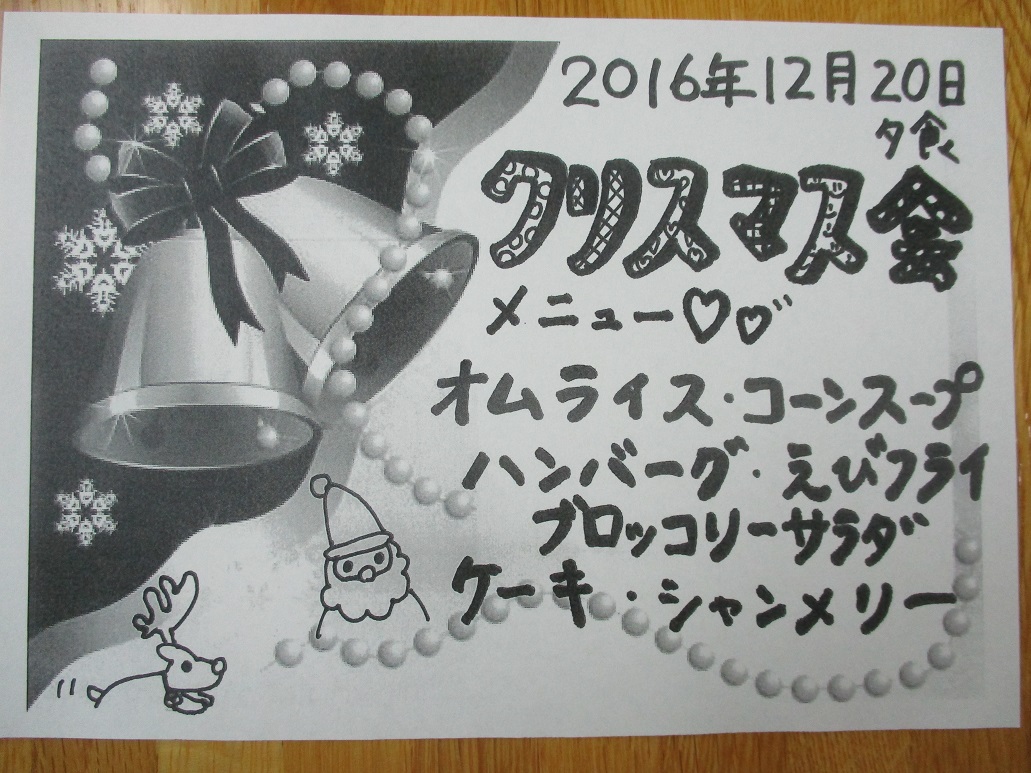 2016年12月20日
夕食
クリスマス会
メニュー♡♡
オムライス・コーンスープ
ハンバーグ・えびフライ
ブロッコリーサラダ
ケーキ・シャンメリー